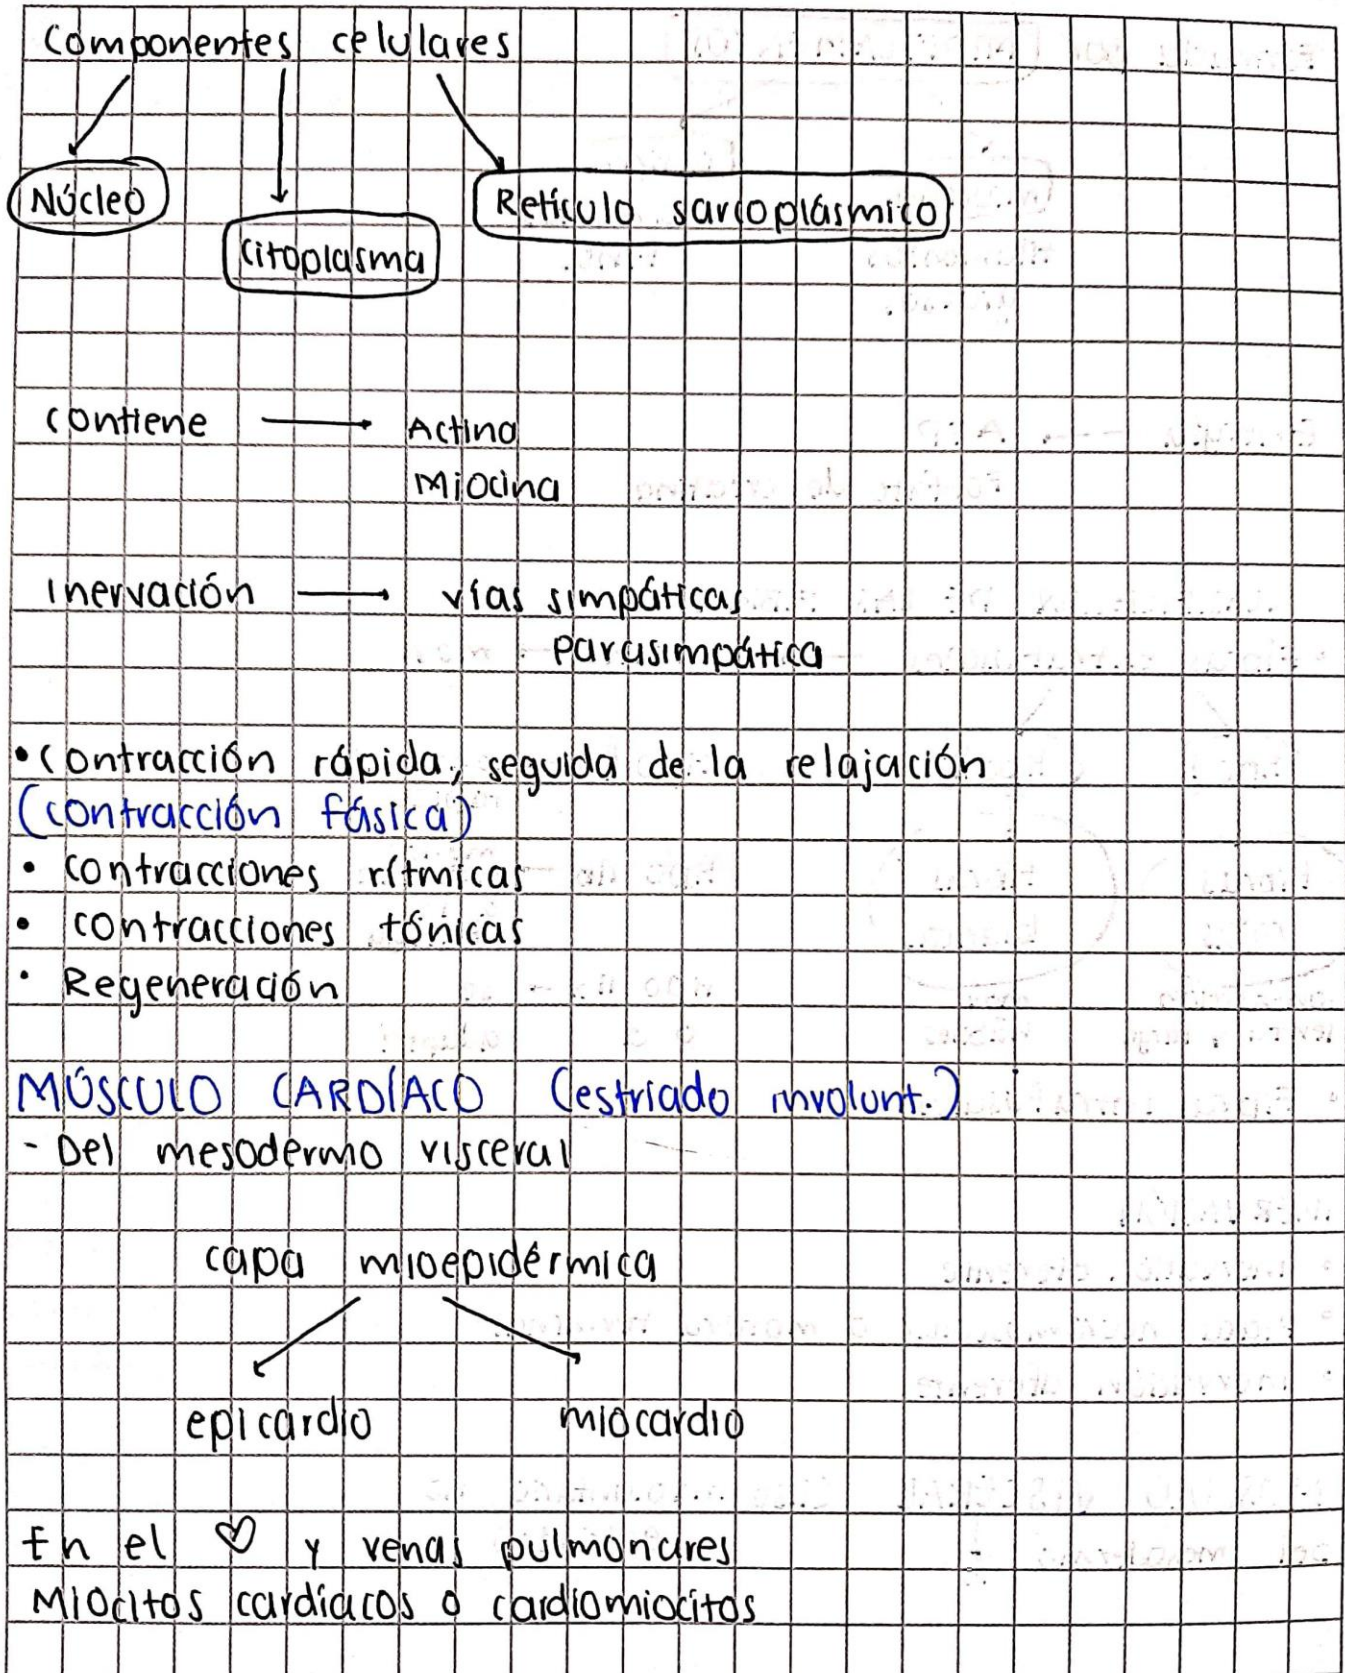 Componentes celulares
Núcleo
Retículo sarcoplásmico
Citoplasma
Contiene → Actina
Miocina
Inervación → vías simpáticas
parasimpática
• Contracción rápida, seguida de la relajación
(contracción fásica)
• contracciones rítmicas
• contracciones tónicas
• Regeneración
MÚSCULO CARDÍACO (estriado involunt.)
- Del mesodermo visceral
capa mioepidérmica
epicardio miocardio
En el ♡ y venas pulmonares
Miocitos cardíacos o cardiomiocitos